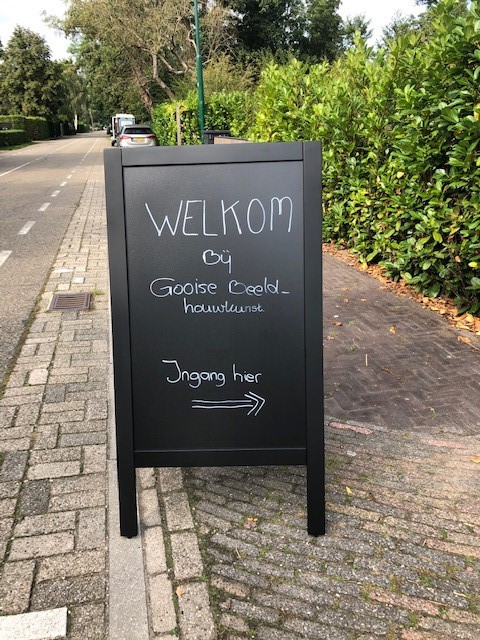 WELKOM
Bij
Gooise Beeld-
houwkunst.
Ingang hier